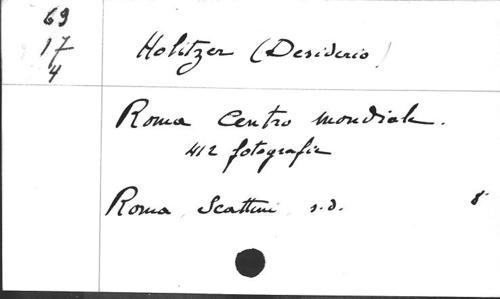 69
17
4
Holitzer (Desiderio)
Roma centro mondiale.
412 fotografie
Roma, Scattini s.d. 8°